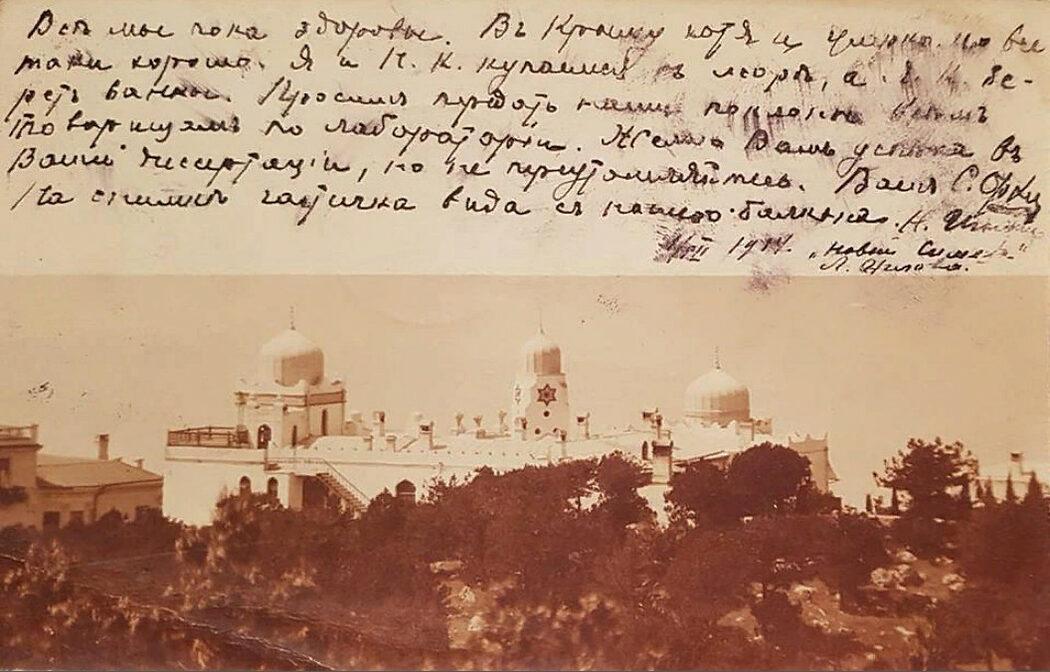 Всѣ мы пока здоровы. Въ Крыму хотя и но все
таки хорошо. Я и Н. К. купаемся въ морѣ, а К. бе-
ретъ ванны. Просимъ передать наши поклоны всѣмъ
товарищамъ по лабораторіи. Желаю Вамъ успѣха въ
Вашей диссертаціи, но не переутомляйтесь. Вашъ С.
На снимкѣ частичка вида съ нашего балкона. Н.
1914. „Новый Симеизъ“